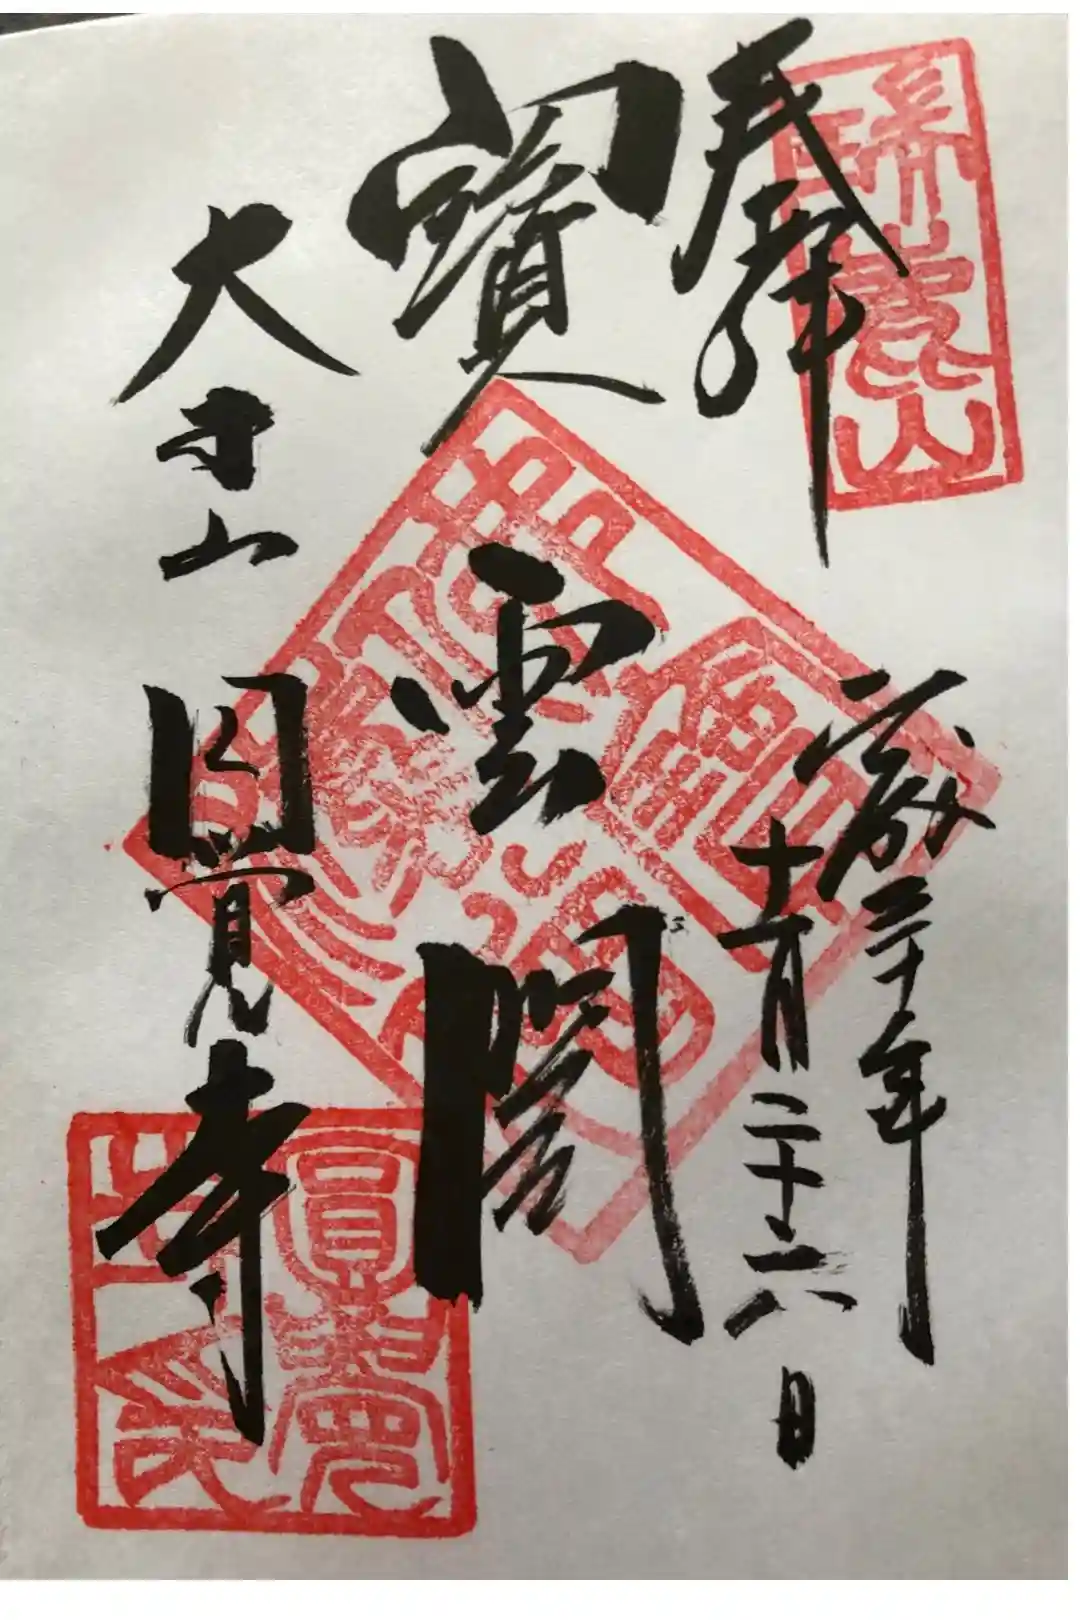 瑞鹿山
奉拝
平成三十年
十一月二十六日
寶雲閣
大本山
円覚寺